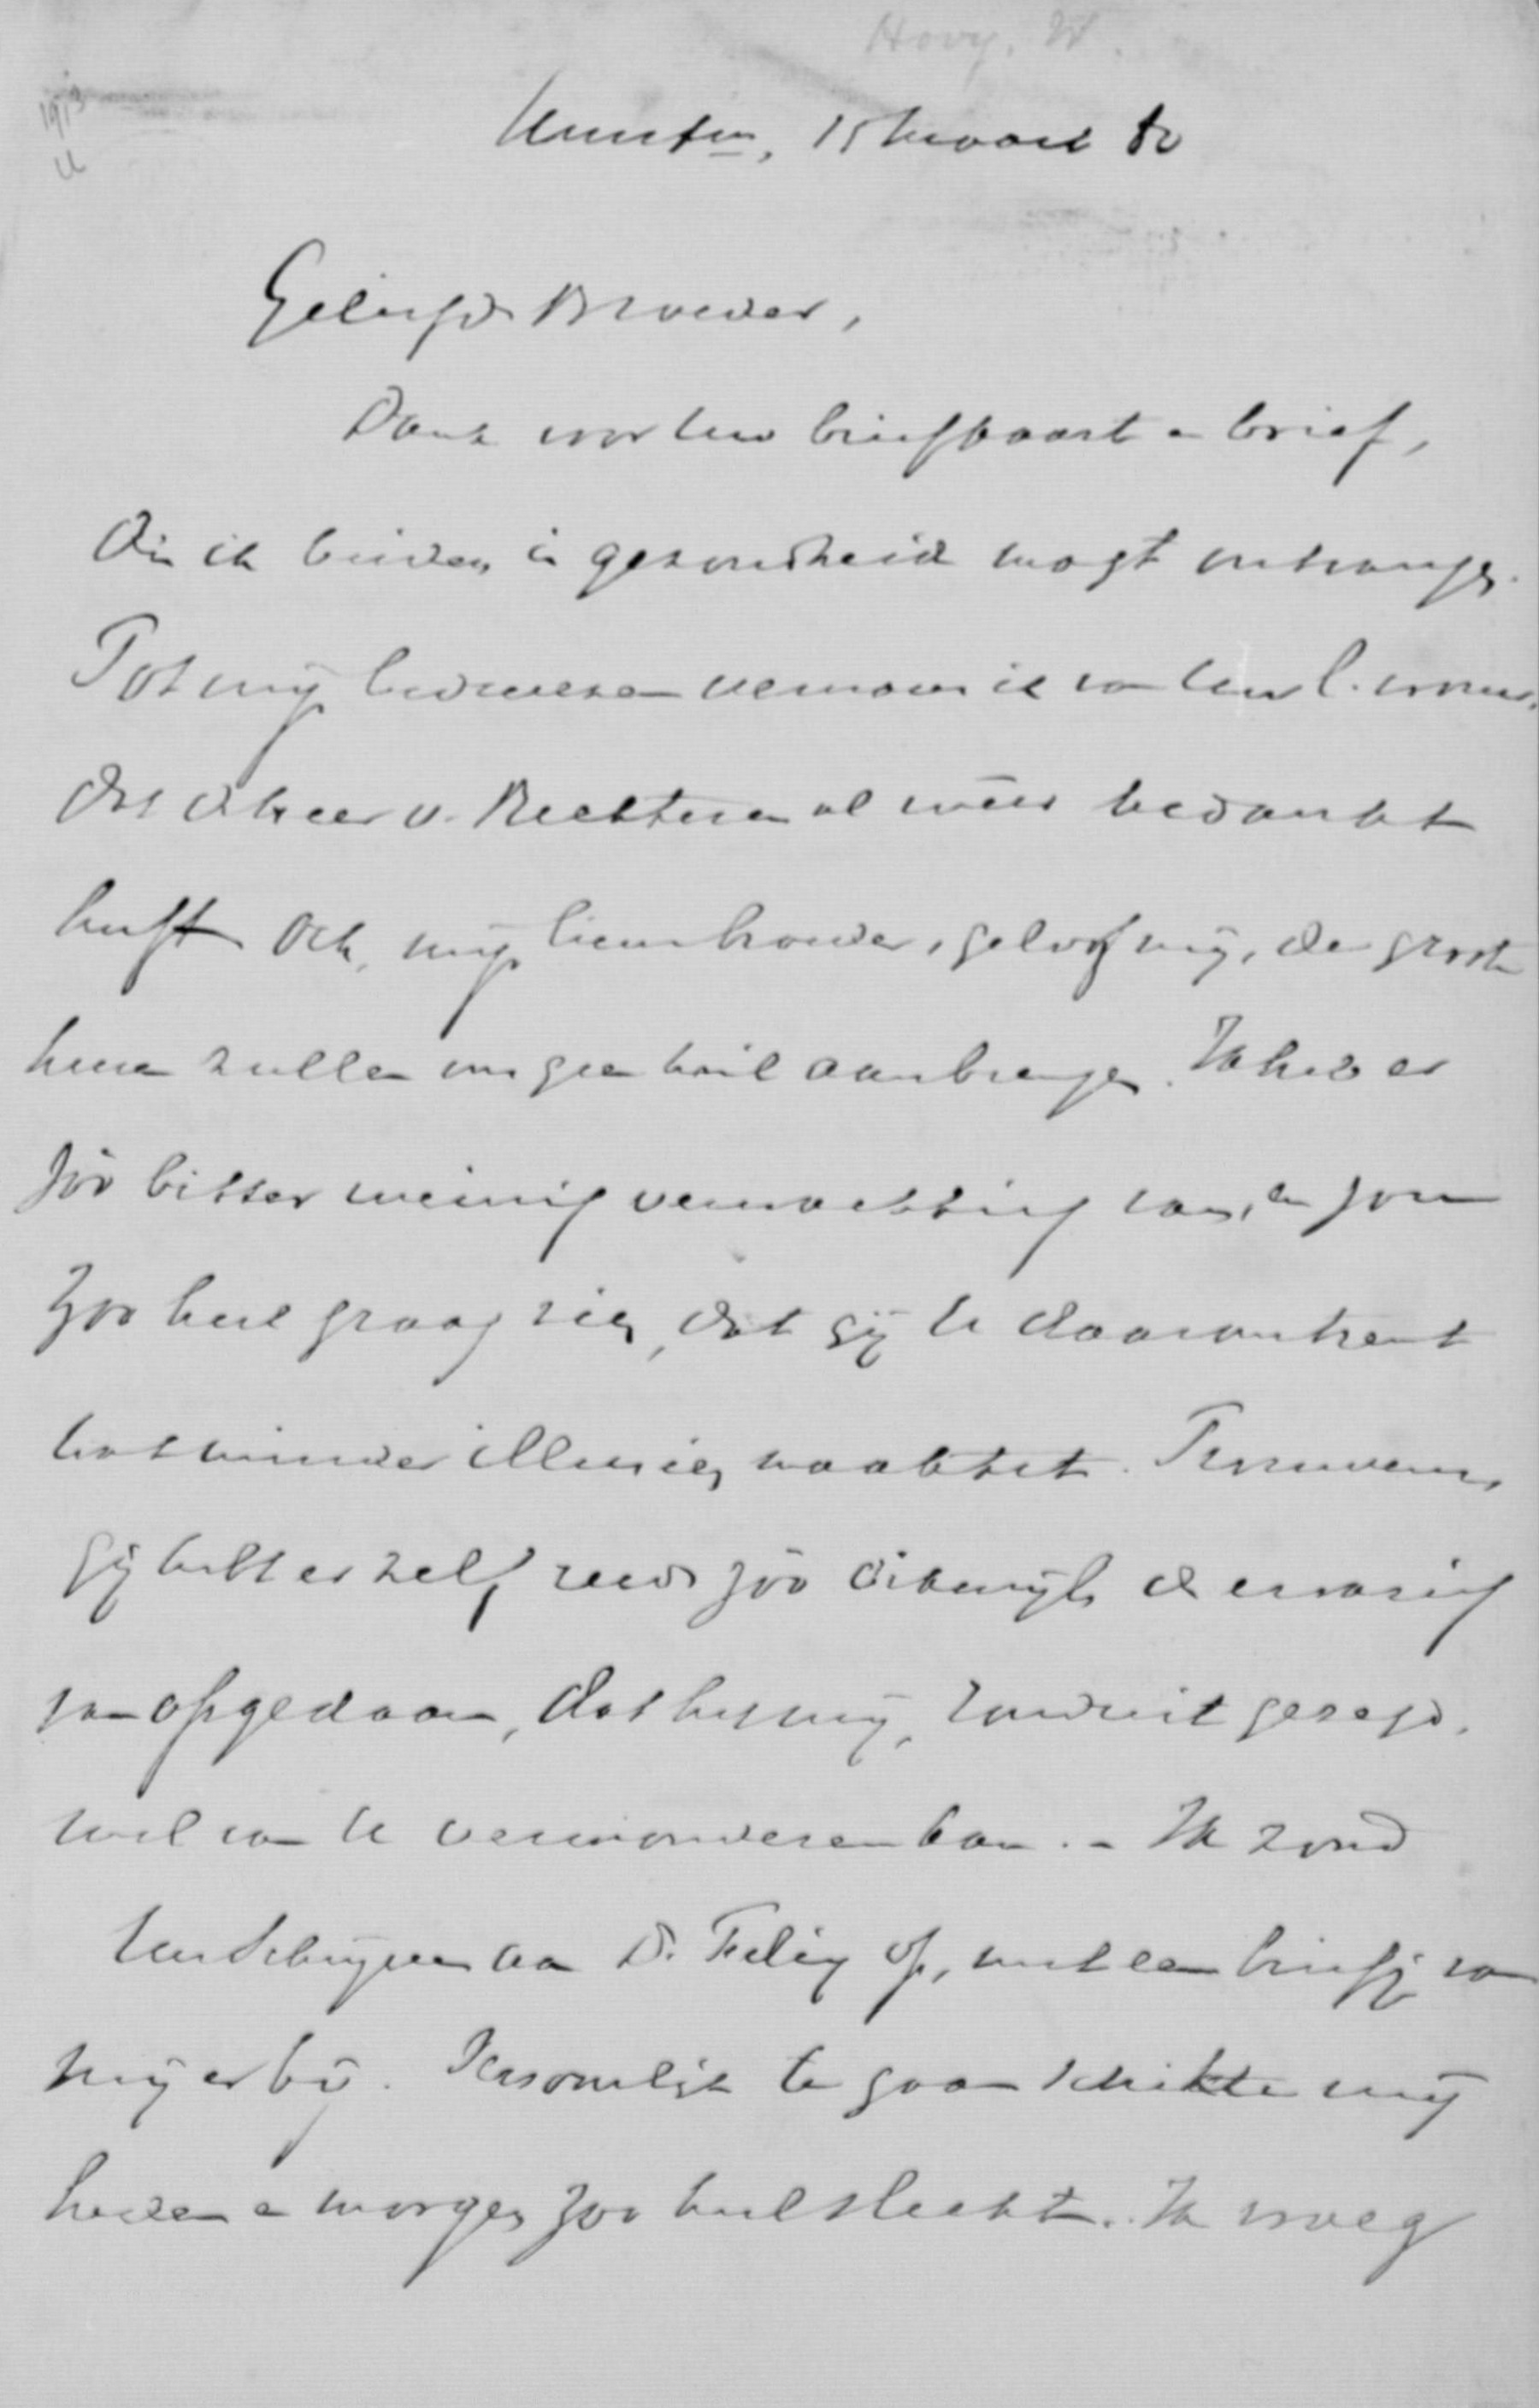 Hovy, W.
1913
Amstm, 15 Maart 80
Geliefde Broeder,
Dank voor Uw briefkaart en brief,
die ik beiden in gezondheid mogt ontvangen.
Tot mijn leedwezen vernam ik van Uw l. vrouw,
dat de heer v. Rechteren al weer bedankt
heeft. Och, mijn lieve broeder, geloof mij, de groote
heeren zullen ons geen heil aanbrengen. Ik heb er
zóó bitter weinig verwachting van, en zou
zoo heel graag zien, dat gij U daaromtrent
wat minder illusien maaktet. Trouwens,
gij hebt er zelf reeds zóó dikwijls de ervaring
van opgedaan, dat het mij, ronduit gezegd,
wel van U verwonderen kan. - Ik zond
Uw schrijven aan Dr. Felix op, met een briefje van
mij er bij. Persoonlijk te gaan schikte mij
heden en morgen zoo heel slecht. Ik vroeg